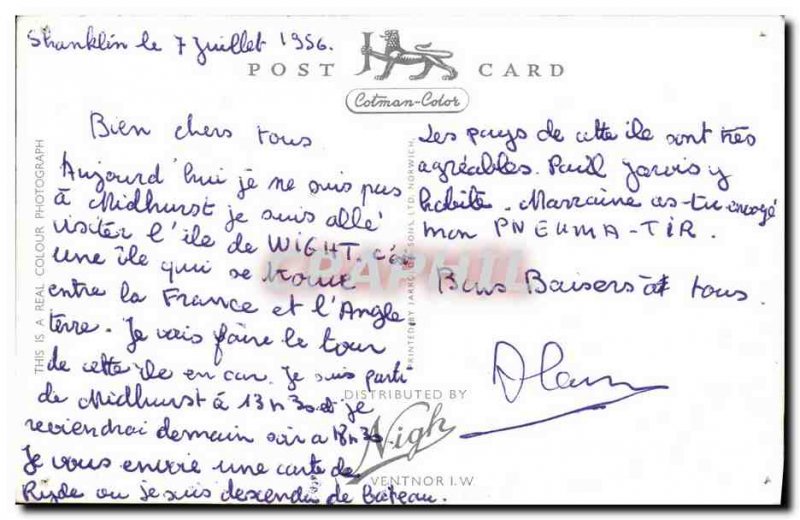 Shanklin le 7 Juillet 1956.
POST CARD
Cotman-Color
THIS IS A REAL COLOUR PHOTOGRAPH
Bien chers tous
Aujourd'hui je ne suis pas
à Midhurst je suis allé
visiter l'île de WIGHT. c'est
une île qui se trouve
entre la France et l'Angle
terre. Je vais faire le tour
de cette île en car. Je suis parti
de Midhurst à 13h30 et je
reviendrai demain soir a 18h30
Je vous envoie une carte de
Ryde ou je suis descendu de bateau.
PRINTED BY JARROLD & SONS, LTD. NORWICH,
Les pays de cette île sont très
agréables. Paul Jarvis y
habite. Marraine as-tu envoyé
mon PNEUMA-TIR.
Bons Baisers à tous.
Alain
DISTRIBUTED BY
Nigh
VENTNOR I.W